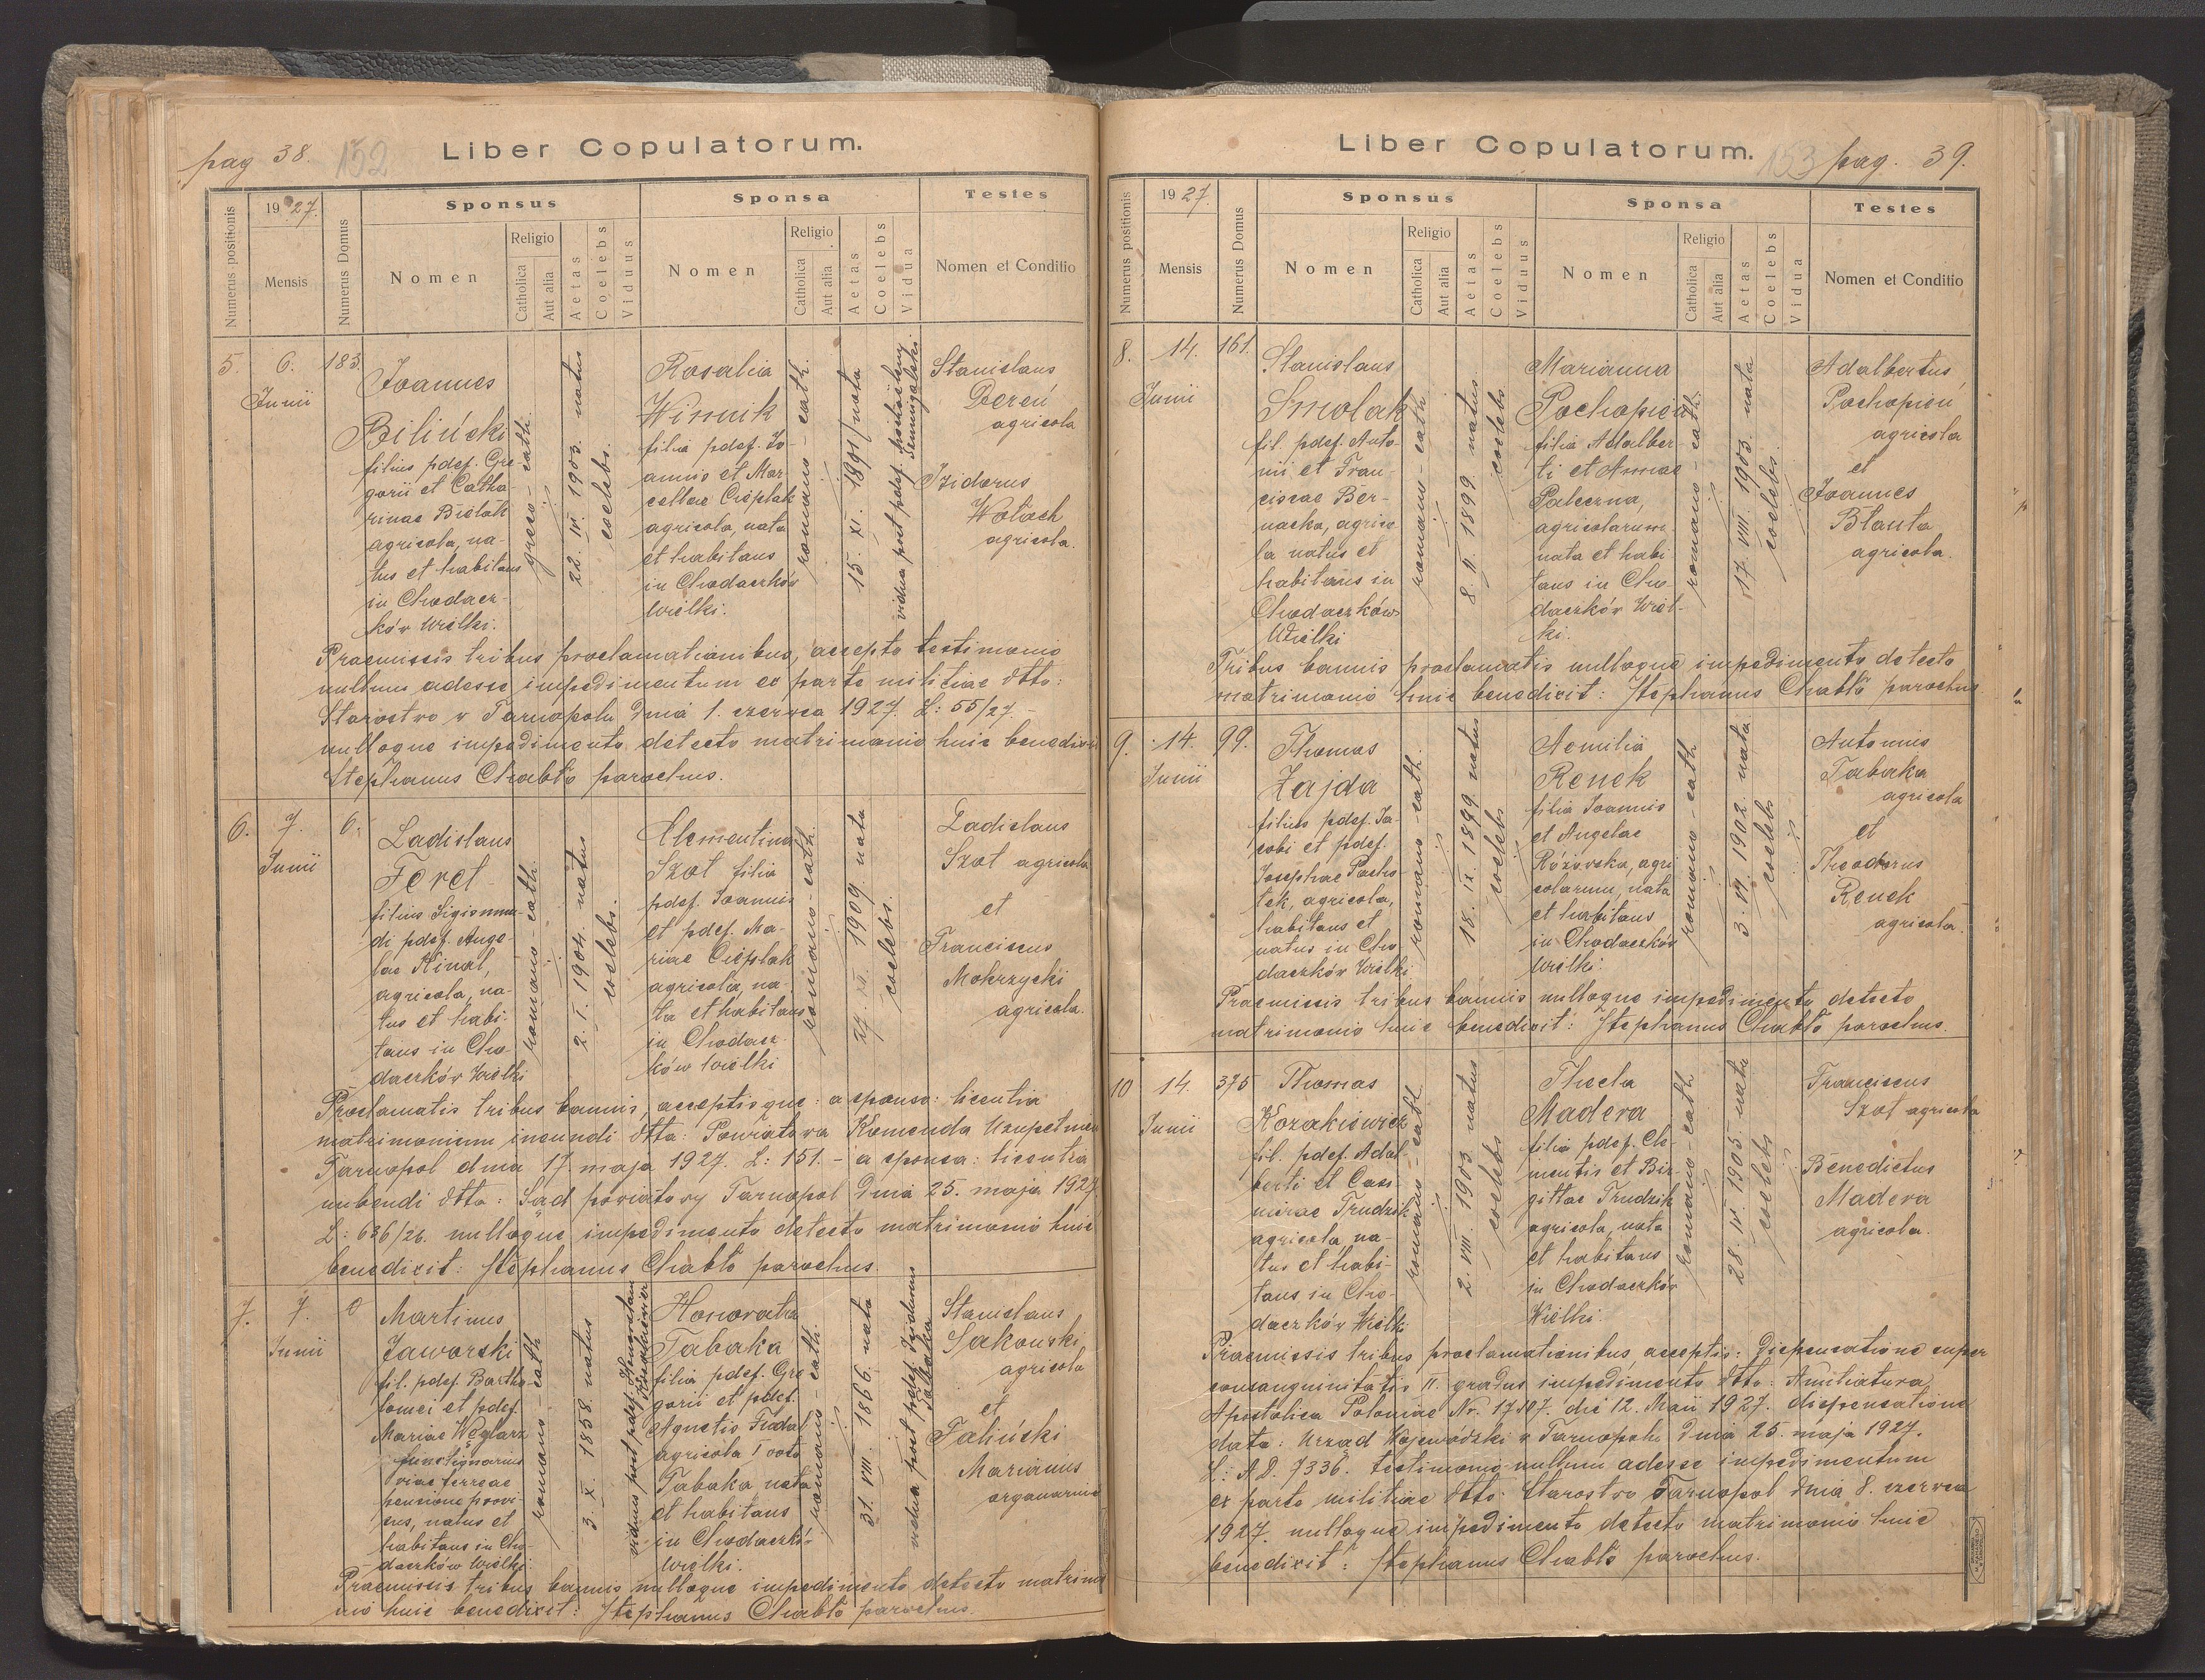 pag 38. 152
Liber Copulatorum.
Numerus positionis
1927.
Mensis
Numerus Domus
Sponsus
Nomen
Religio
Catholica
Aut alia
Aetas
Coelebs
Viduus
Sponsa
Nomen
Religio
Catholica
Aut alia
Aetas
Coelebs
Vidua
Testes
Nomen et Conditio
5.
6.
Junii
183.
Joannes
Biliński
filius pdef. Gre
gorii et Catha-
rinae Bielak
agricola, na-
tus et habitans
in Chodacz-
ków Wielki.
greco-cath.
22. IV. 1903. natus
coelebs.
Rosalia
Winnik
filia pdef. Jo-
annis et Mar-
cellae Cieplak
agricola, nata
et habitans
in Chodaczków
Wielki.
romano-cath.
15. XI. 1891/nata
vidua post pdef.
Stanislaus
Dereń
agricola
Izidorus
Wołoch
agricola.
Praemissis tribus proclamationibus, accepto testimonio
nullum adesse impedimentum ex parte militiae dtto:
Starostwo w Tarnopolu dnia 1. czerwca 1927. L: 55/27.-
nulloque impedimento detecto matrimonio huic benedixit
Stephanus Chabło parochus.
6.
7.
Junii
6.
Ladislaus
Feret
filius Sigismun-
di pdef. Ange-
lae Kinal,
agricola, na-
tus et habi-
tans in Cho-
daczków Wielki
romano-cath.
2. I. 1904. natus
coelebs.
Clementina
Szot filia
pdef. Joannis
et pdef. Ma-
riae Cieplak
agricola, na-
ta et habitans
in Chodacz-
ków Wielki
romano-cath.
24. XI. 1909 nata
coelebs.
Ladislaus
Szot agricola
et
Franciscus
Mokrzycki
agricola.
Proclamatis tribus bannis, acceptisque: a sponso: licentia
matrimonium ineundi dtta: Powiatowa Komenda Uzupełnień
Tarnopol dnia 17. maja 1927. L: 151.- a sponsa: licentia
nubendi dtta: Sąd powiatowy Tarnopol dnia 25. maja 1927.
L: 636/26. nulloque impedimento detecto matrimonio huic
benedixit: Stephanus Chabło parochus.
7.
7.
Junii
Martinus
Jaworski
fil. pdef. Bartho-
lomei et pdef.
Mariae Węglarz
viae ferreae
pensione provi-
sus, natus et
habitans in Cho-
daczków Wielki.
romano-cath
3. X. 1858. natus
viduus post pdef.
Honorata
Tabaka
filia pdef. Gre
gorii et pdef.
Agnetis Fudal
agricola I voto
Tabaka nata
et habitans
in Chodaczków
Wielki.
romano-cath.
31. VIII. 1866. nata
vidua post pdef. Izidorus
Tabaka
Stanislaus
Sakowski
agricola
et
Faliński
Marianus
organarius
Praemissis tribus bannis nulloque impedimento detecto matrimo
nio huic benedixit: Stephanus Chabło parochus.
Liber Copulatorum.
153 pag. 39.
Numerus positionis
1927.
Mensis
Numerus Domus
Sponsus
Nomen
Religio
Catholica
Aut alia
Aetas
Coelebs
Viduus
Sponsa
Nomen
Religio
Catholica
Aut alia
Aetas
Coelebs
Vidua
Testes
Nomen et Conditio
8.
14.
Junii
161.
Stanislaus
Smolak
fil. pdef. Anto-
nii et Fran-
ciscae Ber-
nacka, agrico
la natus et
habitans in
Chodaczków
Wielki
romano-cath.
8. II. 1899. natus
coelebs.
Marianna
Pochopień
filia Adalber-
ti et Annae
Palcerna,
agricolarum.
nata et habi
tans in Cho-
daczków Wiel-
ki.
romano-cath.
17. VIII. 1903. nata
coelebs.
Adalbertus
Pochopień
agricola
et
Joannes
Błauta
agricola.
Tribus bannis proclamatis nulloque impedimento detecto
matrimonio huic benedixit: Stephanus Chabło parochus
9.
14.
Junii
99.
Thomas
Zajda
filius pdef. Ja-
cobi et pdef.
Josephae Pacho-
tek, agricola,
habitans et
natus in Cho
daczków Wielki
romano-cath.
18. IX. 1899. natus
coelebs
Aemilia
Renek
filia Joannis
et Angelae
Różowska, agri
colarum, nata
et habitans
in Chodaczków
Wielki.
romano-cath
3. VI. 1902. nata
coelebs
Antonius
Tabaka
agricola
et
Theodorus
Renek
agricola.
Praemissis tribus bannis nulloque impedimento detecto
matrimonio huic benedixit: Stephanus Chabło parochus.
10
14.
Junii
375
Thomas
Kozakiewicz
fil. pdef. Adal
berti et Casi-
mirae Trudzik
agricola, na-
tus et habi-
tans in Cho-
daczków Wielki
romano-cath.
2. VIII. 1903. natus
coelebs
Thecla
Madera
filia pdef. Cle-
mentis et Bir-
gittae Trudzik
agricola, nata
et habitans
in Chodaczków
Wielki.
romano-cath
28. IV. 1905. nata
coelebs
Franciscus
Szot agricola
Benedictus
Madera
agricola.
Praemissis tribus proclamationibus, acceptis: Dispensatione super
consanguinitatis II. gradus impedimento dtto: Nuntiatura
Apostolica Poloniae Nr. 17107. die 12. Maii 1927. dispensatione
data: Urząd Wojewódzki w Tarnopolu dnia 25. maja 1927.
L: A.D. 7336. testimonio nullum adesse impedimentum
ex parte militiae dtto: Starostwo Tarnopol dnia 8. czerwca
1927. nulloque impedimento detecto matrimonio huic
benedixit: Stephanus Chabło parochus.